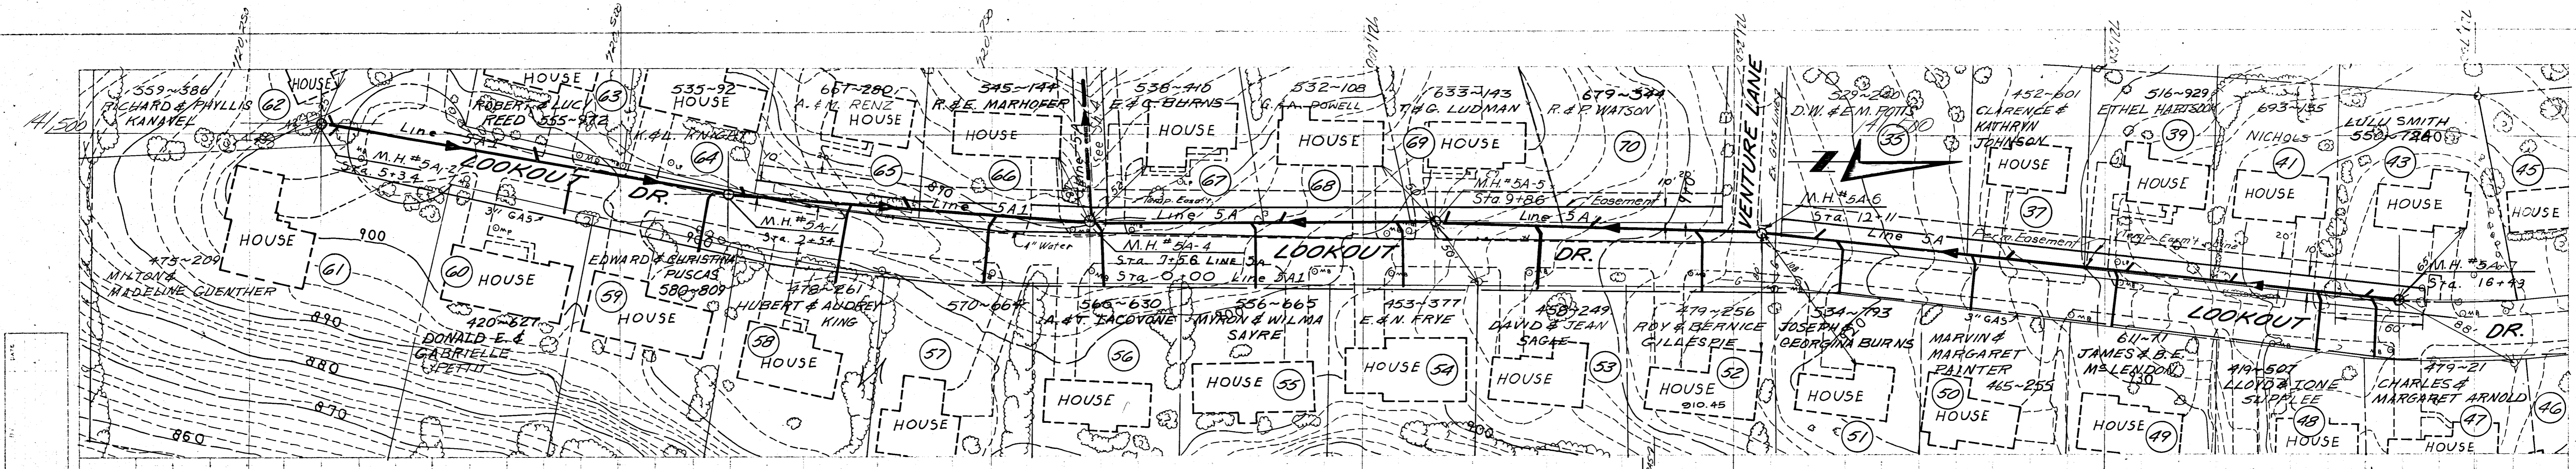 141,500
559~586
RICHARD & PHYLLIS
KANAVEL
62
HOUSE
HOUSE
ROBERT & LUCY
REED 555~972
63
535~92
HOUSE
K. & L. KNIGHT
64
667~280
A. & M. RENZ
HOUSE
65
345~144
R. & E. MARHOFER
HOUSE
66
Line 5A
538~416
E. & G. BURNS
HOUSE
67
532~108
G. & A. POWELL
HOUSE
68
633~143
T. & G. LUDMAN
HOUSE
69
679~344
R. & P. WATSON
70
VENTURE LANE
Ex. GAS LINE
529~240
D.W. & E.M. POTTS
35
452~601
CLARENCE &
KATHRYN
JOHNSON
HOUSE
37
516~929
ETHEL HARTSOCK
39
HOUSE
693~135
NICHOLS
41
HOUSE
LULU SMITH
550~7260
43
HOUSE
45
HOUSE
Line 5A1
M.H. #5A-2
Sta 5+34
LOOKOUT
DR.
3" GAS
M.H. #5A-1
Sta. 2+54
890
Line 5A1
4" Water
Temp. Easm't
Line 5A
M.H. #5A-4
Sta. 7+56 LINE 5A
Sta. 0+00 Line 5A1
LOOKOUT
M.H. #5A-5
Sta 9+86
Line 5A
Easement
DR.
M.H. #5A-6
Sta. 12+11
Line 5A
Perm. Easement
Temp. Easm't Line
20'
10'
M.H. #5A-7
Sta. 16+43
LOOKOUT
DR.
60'
88'
3" GAS
HOUSE
900
61
473~209
MILTON &
MADELINE GUENTHER
60
HOUSE
420~627
DONALD E. &
GABRIELLE
PETTIT
59
HOUSE
EDWARD & CHRISTINA
PUSCAS
580~809
900
478~261
HUBERT & AUDREY
KING
58
HOUSE
570~664
57
HOUSE
566~630
A. & T. IACOVONE
56
HOUSE
556~665
MYRON & WILMA
SAYRE
HOUSE
55
453~377
E. & N. FRYE
HOUSE
54
458~249
DAVID & JEAN
SAGLE
HOUSE
53
479~256
ROY & BERNICE
GILLESPIE
HOUSE
52
910.45
534~793
JOSEPH &
GEORGINA BURNS
HOUSE
51
MARVIN &
MARGARET
PAINTER
465~255
50
HOUSE
611~71
JAMES & B.E.
McLENDON
930
HOUSE
49
419~507
LLOYD & IONE
SUPPLEE
48
HOUSE
479~21
CHARLES &
MARGARET ARNOLD
47
HOUSE
46
890
880
870
860
900